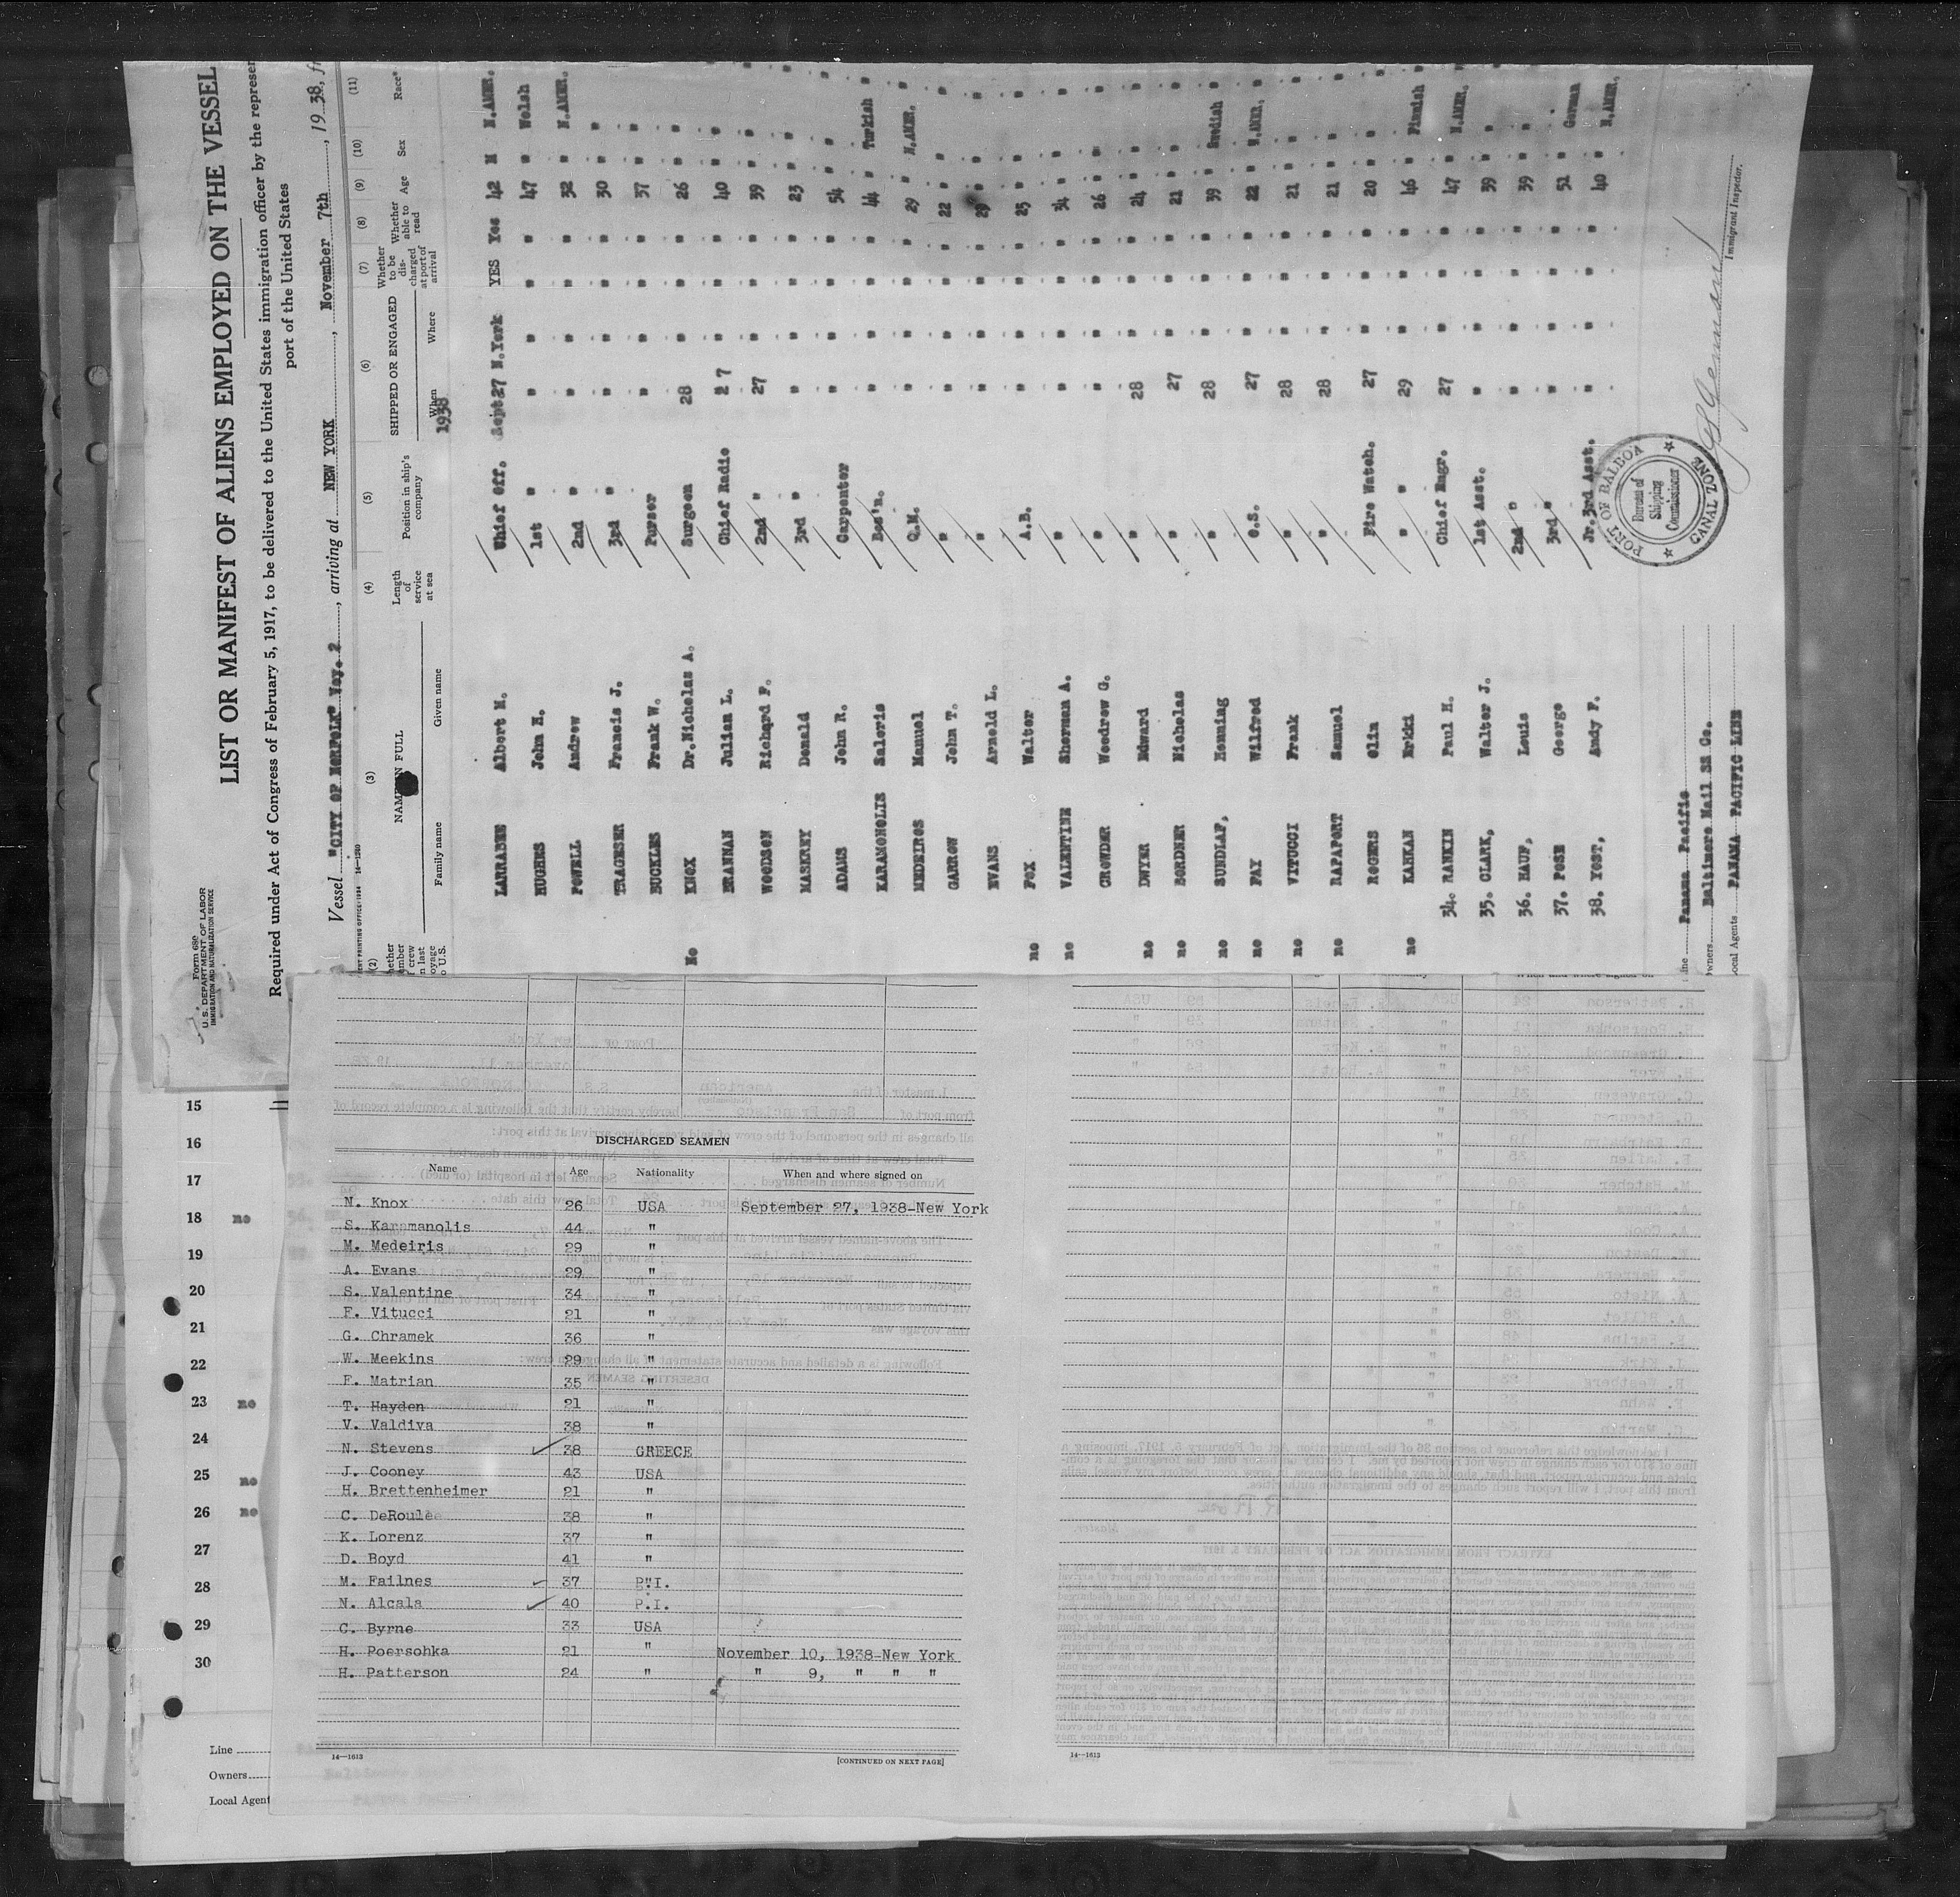 Form 680
U. S. DEPARTMENT OF LABOR
IMMIGRATION AND NATURALIZATION SERVICE
LIST OR MANIFEST OF ALIENS EMPLOYED ON THE VESSEL
Required under Act of Congress of February 5, 1917, to be delivered to the United States immigration officer by the represen
port of the United States
Vessel "CITY OF NORFOLK" Voy. 2, arriving at NEW YORK, November 7th, 1938, fr
(2) (3) (4) (5) (6) (7) (8) (9) (10) (11)
NAME IN FULL
Family name Given name
Length of service at sea
Position in ship's company
SHIPPED OR ENGAGED
When Where
1938
Whether to be discharged at port of arrival
Whether able to read
Age
Sex
Race*
LARRABEE Albert M. Chief Off. Sept 27 N.York YES Yes 42 M N.AMER.
HUGHES John H. 1st " " " " " 47 " Welsh
POWELL Andrew 2nd " " " " " 32 " N.AMER.
TRAGESER Francis J. 3rd " " " " " 30 " "
BUCKLES Frank W. Purser " " " " 37 " "
No KNOX Dr.Nicholas A. Surgeon 28 " " " 26 " "
BRANNAN Julian L. Chief Radio 27 " " " 40 " "
WOODSON Richard F. 2nd " 27 " " " 39 " "
MASKREY Donald 3rd " " " " " 23 " "
ADAMS John R. Carpenter " " " " 54 " "
KARAMONOLIS Saleris Bos'n. " " " " 44 " Turkish
MEDEIROS Manuel Q.M. " " " " 29 " N.AMER.
GARROW John T. " " " " " 22 " "
EVANS Arnold L. " " " " " 29 " "
no FOX Walter A.B. " " " " 25 " "
no VALENTINE Sherman A. " " " " " 34 " "
CROWDER Woodrow G. " " " " " 26 " "
no DWYER Edward " 28 " " " 24 " "
no BORDNER Nicholas " 27 " " " 21 " "
no SUNDLAF, Henning " 28 " " " 39 " Swedish
no FAY Wilfred O.S. 27 " " " 22 " N.AMER.
no VITUCCI Frank " 28 " " " 21 " "
no RAPAPORT Samuel " 28 " " " 21 " "
ROGERS Olin Fire Watch. 27 " " " 20 " "
no KAHKAN Erkki " " 29 " " " 46 " Finnish
34. RANKIN Paul H. Chief Engr. 27 " " " 47 " N.AMER.
35. CLARK, Walter J. 1st Asst. " " " " 39 " "
36. HAUF, Louis 2nd " " " " " 39 " "
37. POSE George 3rd " " " " " 51 " German
38. YOST, Andy F. Jr.3rd Asst. " " " " 40 " N.AMER.
PORT OF BALBOA
Bureau of Shipping Commissioner
CANAL ZONE
Immigrant Inspector.
Line Panama Pacific
Owners Baltimore Mail SS Co.
Local Agents PANAMA PACIFIC LINE
15
16
17
18 no
19
20
21
22
23 no
24
25 no
26 no
27
28
29
30
Line
Owners
Local Agent
DISCHARGED SEAMEN
Name Age Nationality When and where signed on
N. Knox 26 USA September 27, 1938-New York
S. Karamanolis 44 "
M. Medeiris 29 "
A. Evans 29 "
S. Valentine 34 "
F. Vitucci 21 "
G. Chramek 36 "
W. Meekins 29 "
F. Matrian 35 "
T. Hayden 21 "
V. Valdiva 38 "
N. Stevens 38 GREECE
J. Cooney 43 USA
H. Brettenheimer 21 "
C. DeRoulee 38 "
K. Lorenz 37 "
D. Boyd 41 "
M. Failnes 37 P.I.
N. Alcala 40 P.I.
C. Byrne 33 USA
H. Poersohka 21 " November 10, 1938-New York
H. Patterson 24 " " 9, " " "
14—1613
[CONTINUED ON NEXT PAGE]
14—1613